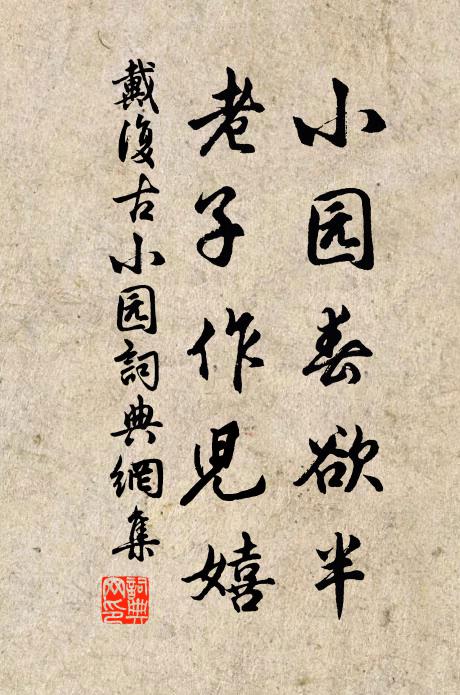 小园春欲半
老子作兒嬉
戴復古小园詞典網集
詞典网印